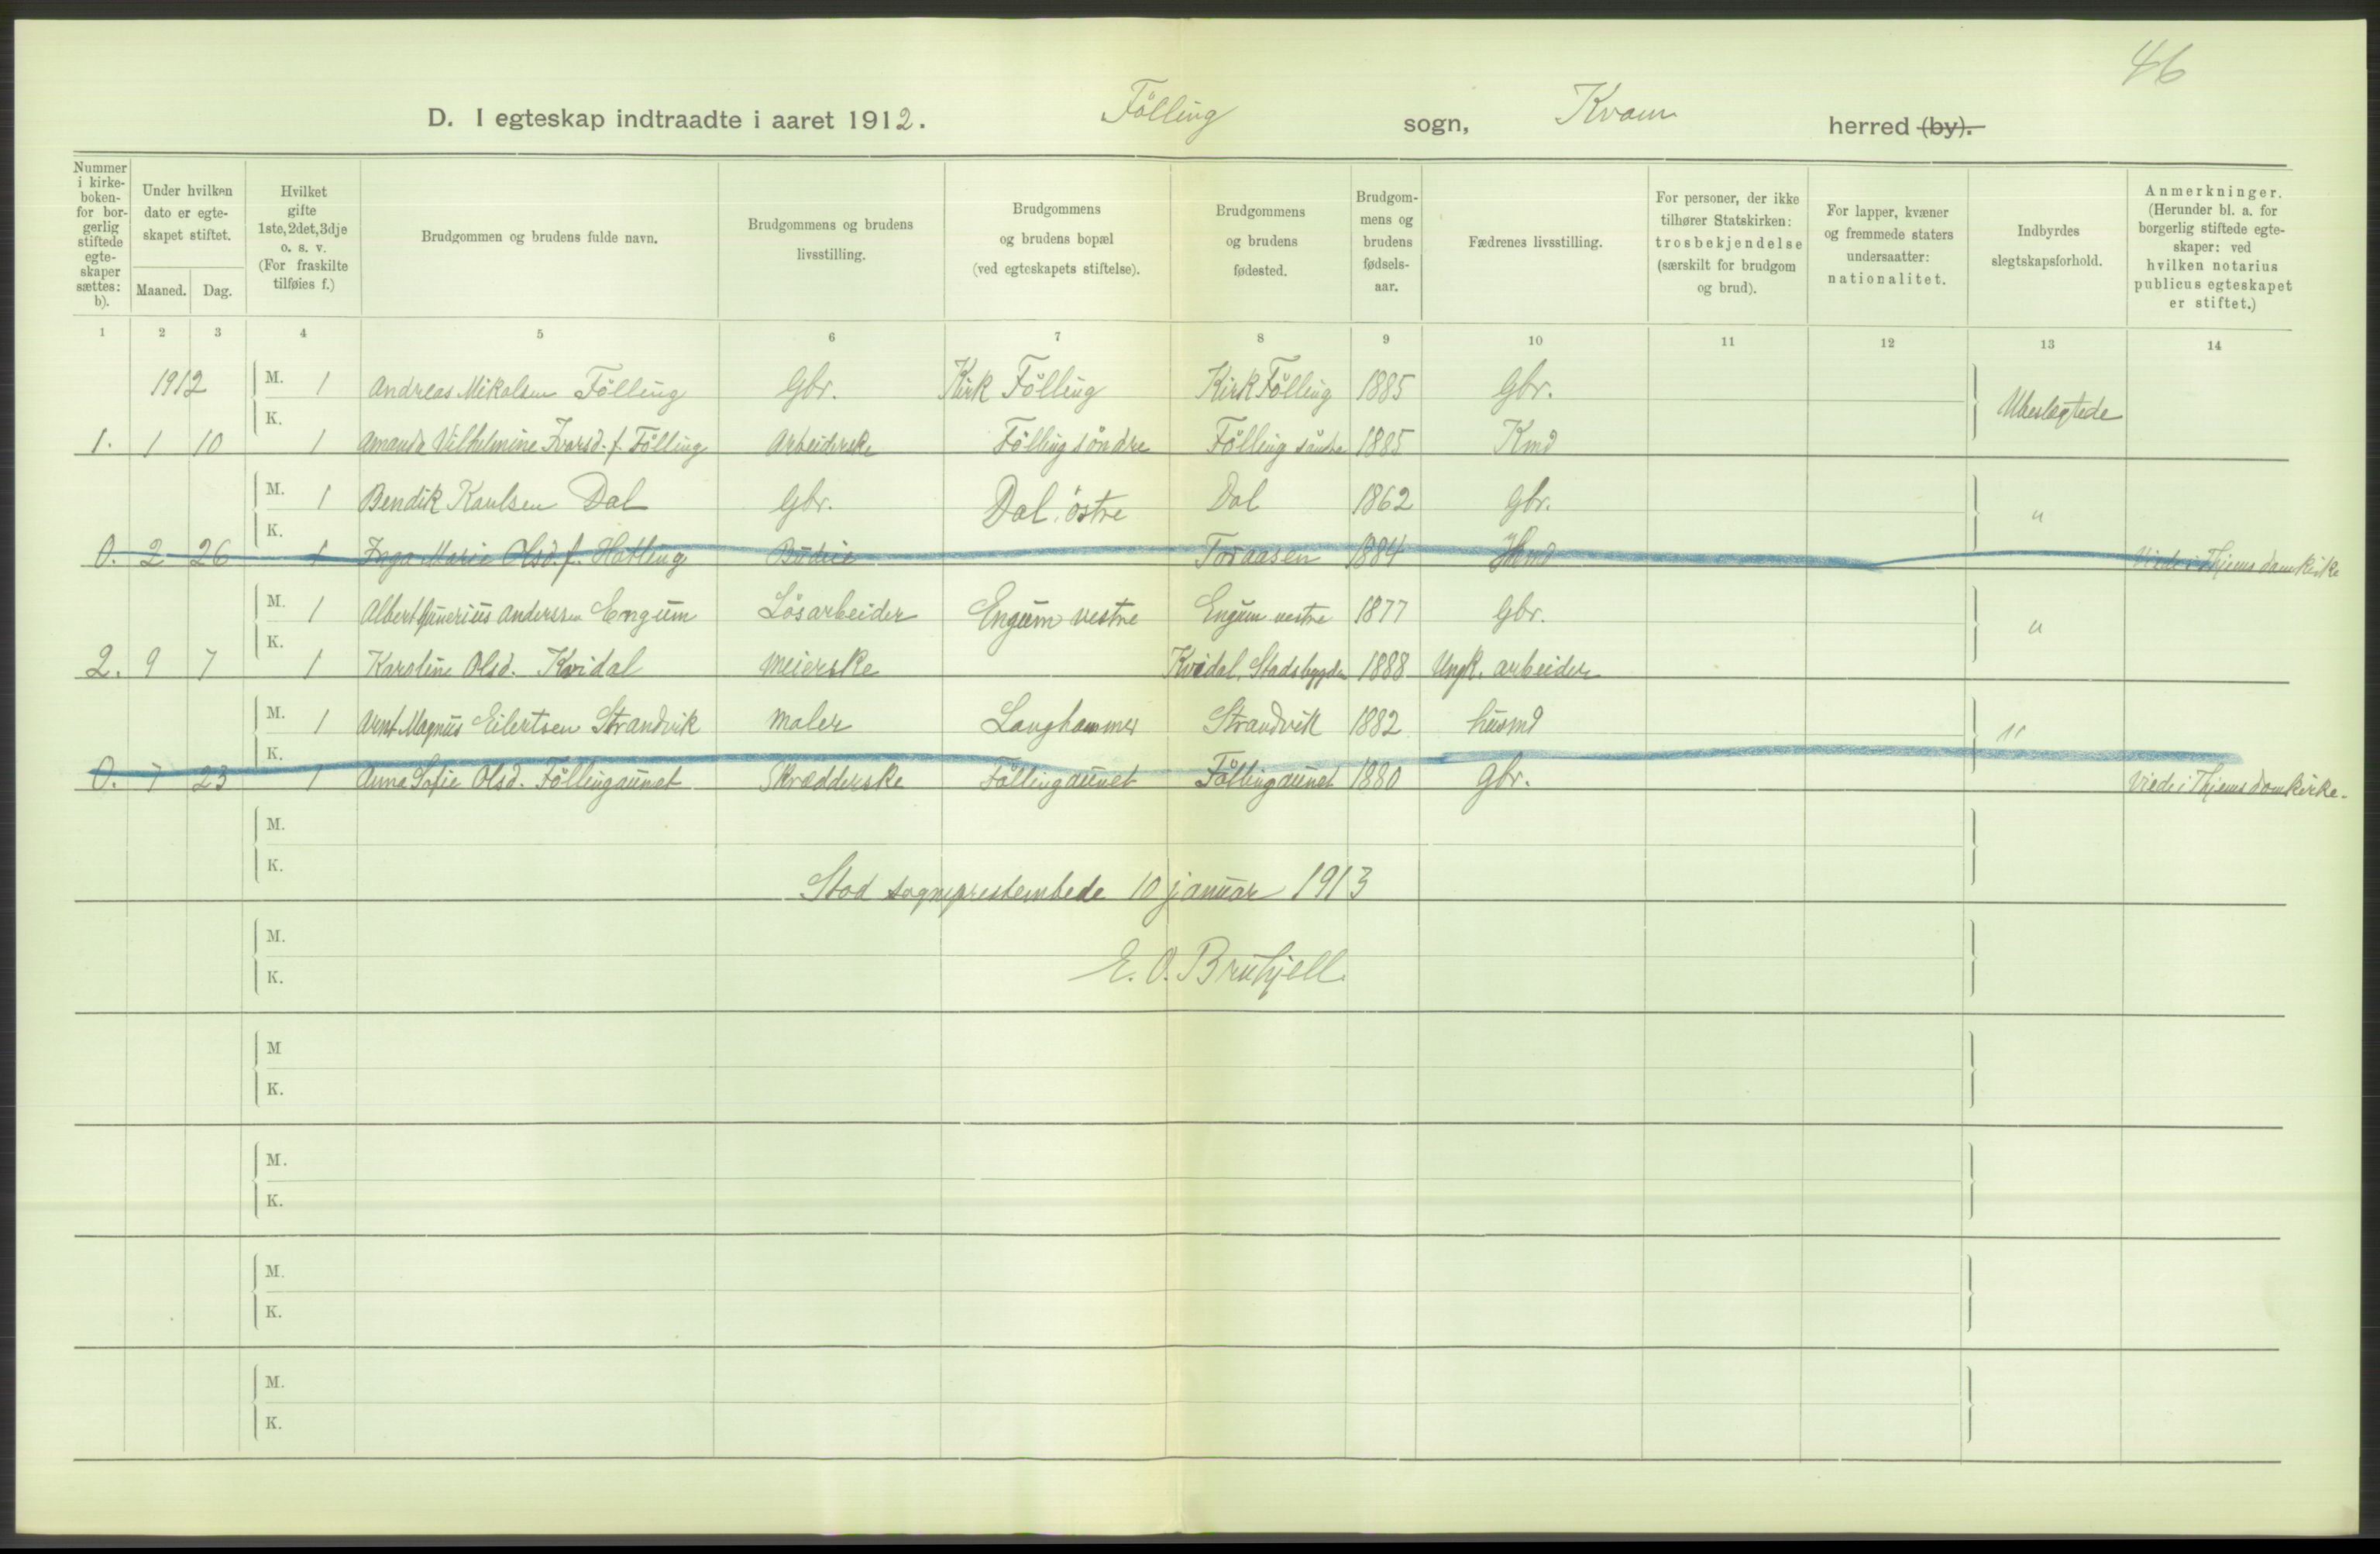 46
D. I egteskap indtraadte i aaret 1912. Fölling sogn, Kvam herred (by).
Nummer i kirkeboken- for borgerlig stiftede egteskaper sættes: b).
Under hvilken dato er egteskapet stiftet.
Maaned. Dag.
Hvilket gifte 1ste, 2det, 3dje o. s. v. (For fraskilte tilføies f.)
Brudgommen og brudens fulde navn.
Brudgommens og brudens livsstilling.
Brudgommens og brudens bopæl (ved egteskapets stiftelse).
Brudgommens og brudens fødested.
Brudgommens og brudens fødselsaar.
Fædrenes livsstilling.
For personer, der ikke tilhører Statskirken: trosbekjendelse (særskilt for brudgom og brud).
For lapper, kvæner og fremmede staters undersaatter: nationalitet.
Indbyrdes slegtskapsforhold.
Anmerkninger. (Herunder bl. a. for borgerlig stiftede egteskaper: ved hvilken notarius publicus egteskapet er stiftet.)
1 2 3 4 5 6 7 8 9 10 11 12 13 14
1912 M. 1 Andreas Mikalsen Fölling Gbr. Kirk Fölling Kirk Fölling 1885 Gbr. Ubeslegtede
1. 1 10 K. 1 Amanda Vilhelmine Ivarsd. f. Fölling Arbeiderske Fölling söndre Fölling söndre 1885 Kmd
M. 1 Bendik Paulsen Dal Gbr. Dal östre Dal 1862 Gbr. "
0. 2 26 K. 1 Inga Marie Olsd. f. Hatling Budeie Toraasen 1884 Hmd Viede i Thjems domkirke
M. 1 Albert Gunerius Anderssen Engum Lösarbeider Engum vestre Engum vestre 1877 Gbr. "
2. 9 7 K. 1 Karoline Olsd. Kvidal Meierske Kvidal, Stadsbygden 1888 Ungk. arbeider
M. 1 Arnt Magnus Eilertsen Strandvik Maler Langhammer Strandvik 1882 husmd "
0. 7 23 K. 1 Anna Sofie Olsd.Föllingaunet Skrædderske Föllingaunet Föllingaunet 1880 Gbr. Viede i Thjems domkirke.
M.
K.
Stod sogneprestembede 10 januar 1913
M.
E. O. Bruhjell.
K.
M
K.
M.
K.
M.
K.
M.
K.